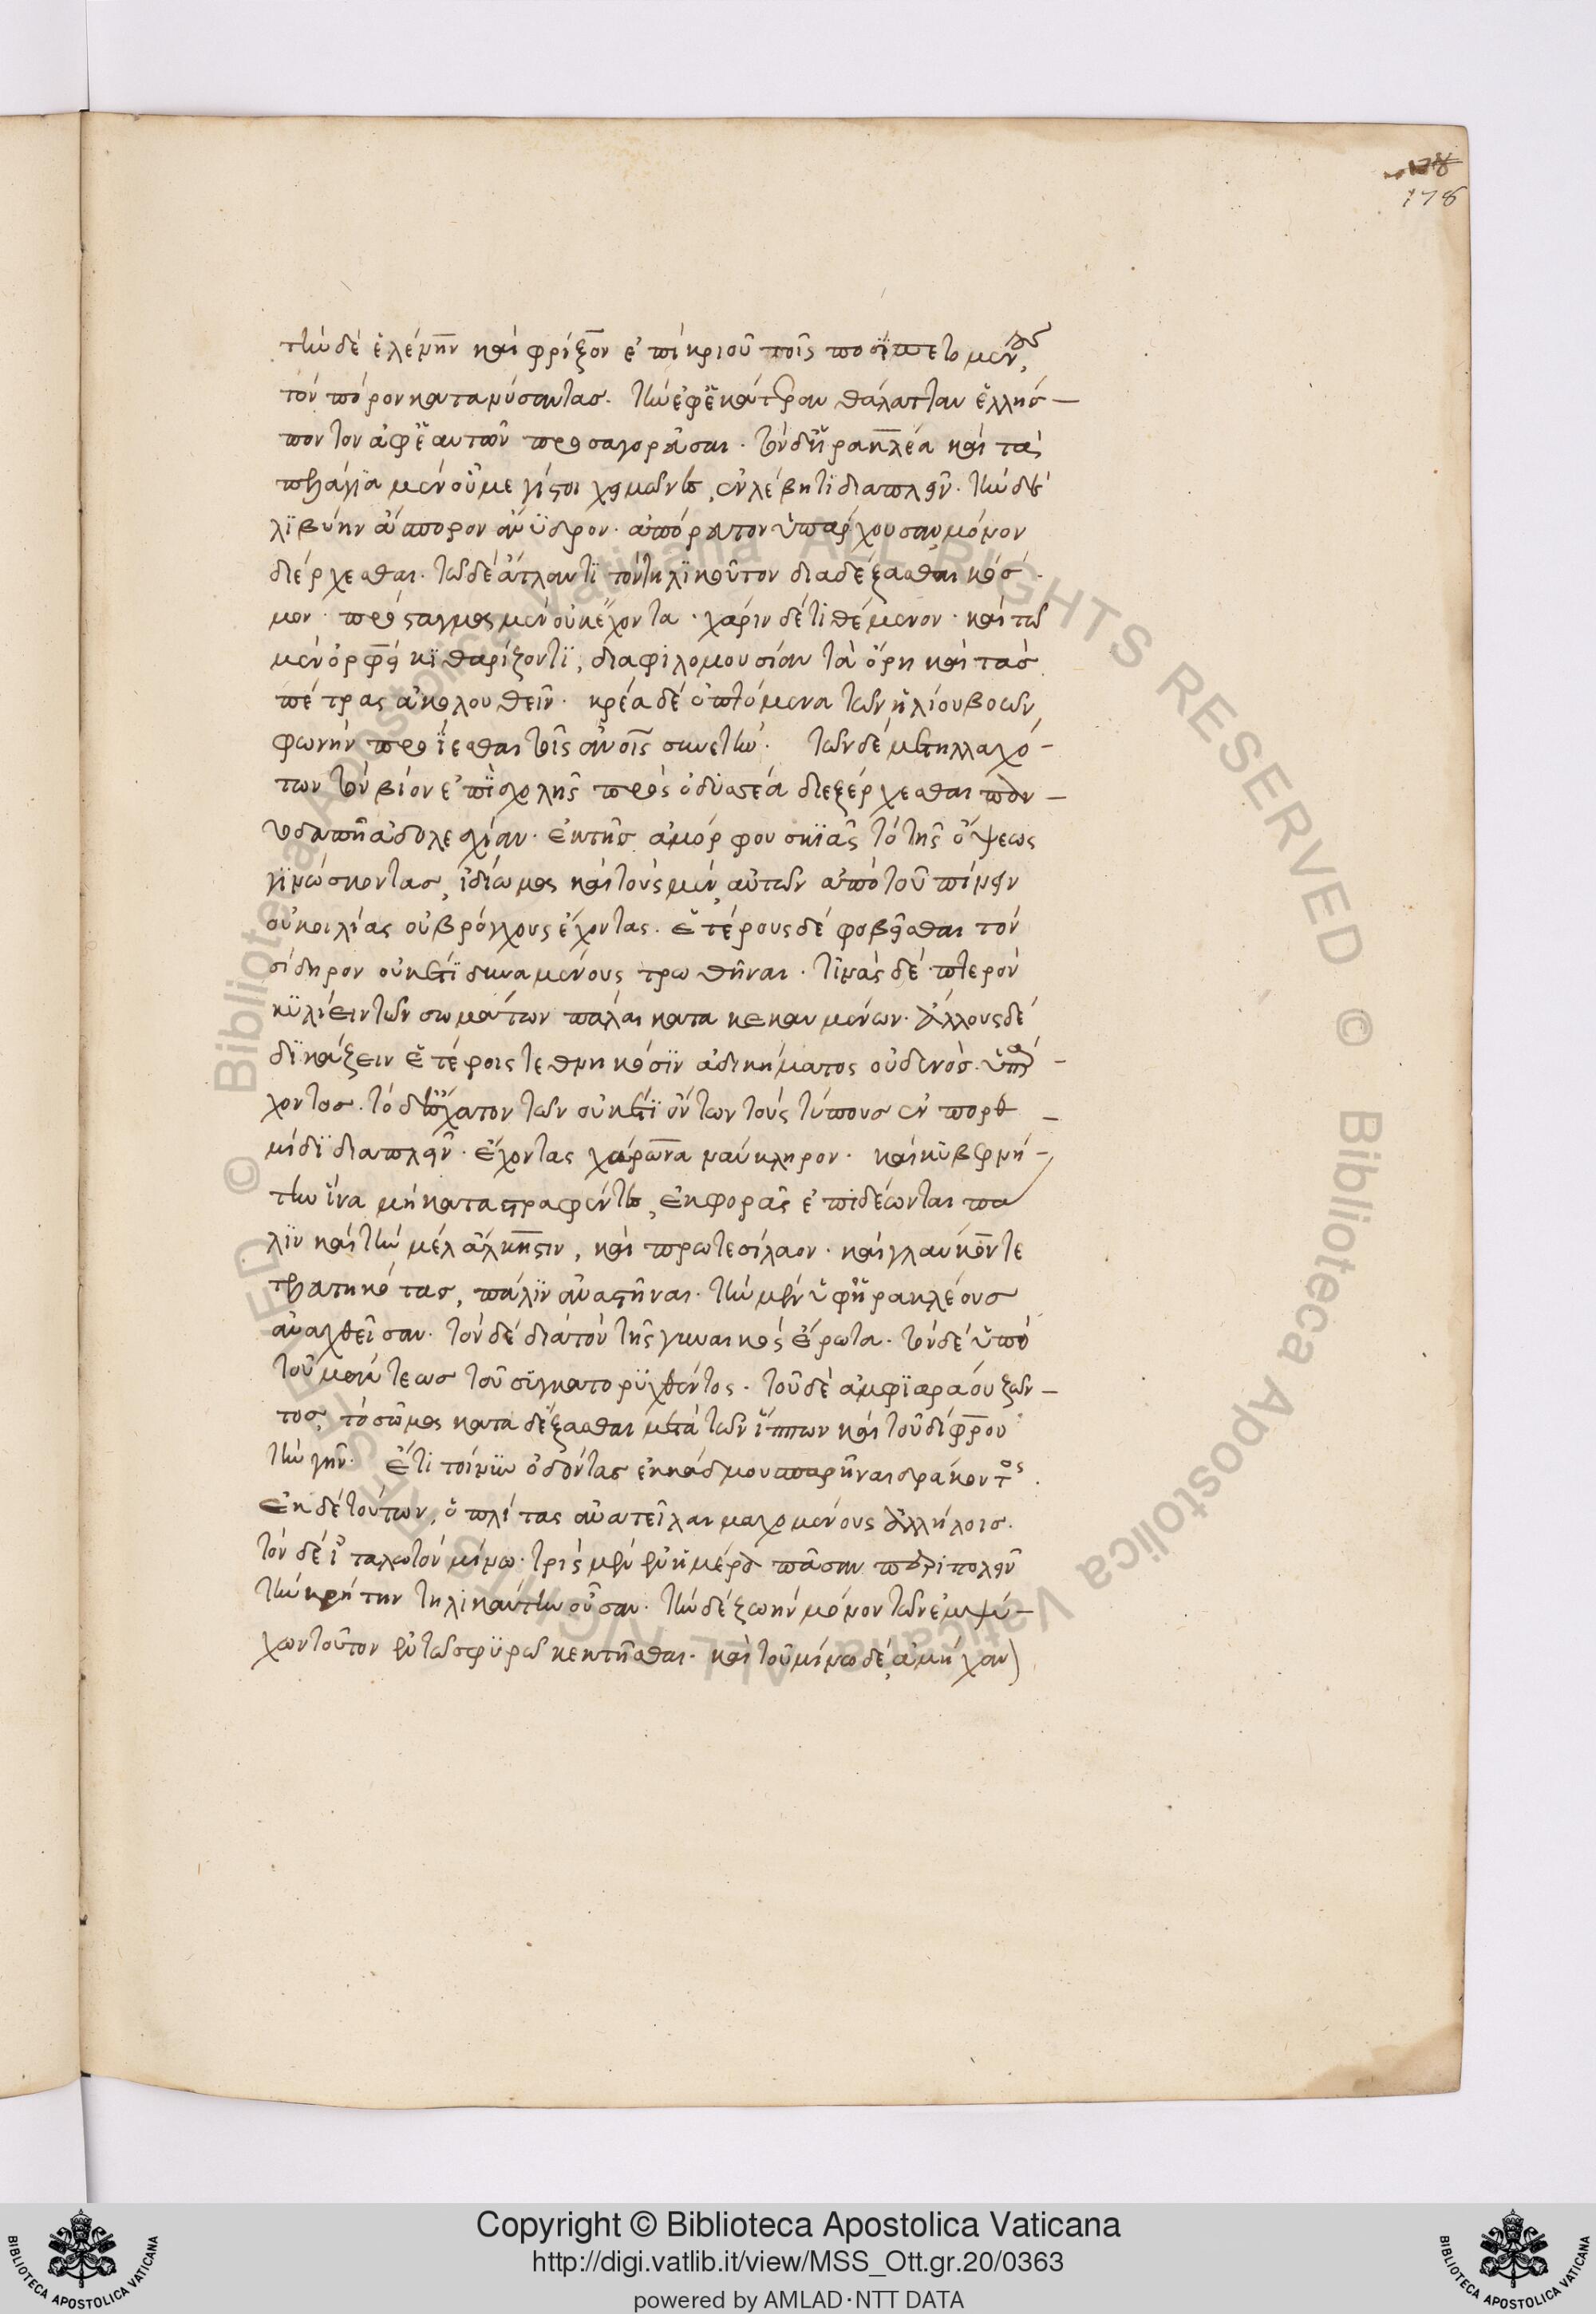 178
178
τὴν δὲ ἑλένην καὶ φρίξον ἐπὶ κριοῦ τοῖς ποσὶ πετομένους,
τὸν πόρον κατανύσαντας. τὴν ἐφ ἑκάτερον θάλατταν ἑλλήσ-
ποντον ἀφ ἑαυτῶν προσαγορεῦσαι. τὸν δ ἡρακλέα καὶ τὰ
πελάγια μὲν οὗ μέγιστοι χειμῶνες, ἐν λέβητι διαπλεῖν. τὴν δὲ
λιβύην ἄπορον ἄνυδρον. ἀπόρατον ὑπάρχουσαν, μόνον
διέρχεσθαι. τῶ δὲ ἄτλαντι τὸν τηλικοῦτον διαδέξασθαι κόσ
μον. πρόσταγμα μὲν οὐκ ἔχοντα. χάριν δὲ τιθέμενον. καὶ τῶ
μὲν ὀρφεῖ κιθαρίζοντι, διαφιλομουσίαν τὰ ὄρη καὶ τὰς
πέτρας ἀκολουθεῖν. κρέα δὲ ὀπτόμενα τῶν ἡλίου βοῶν,
φωνὴν προΐεσθαι τοῖς ἀνοις συνετήν. τῶν δὲ μετηλλαχό-
των τὸν βίον ἐπὶ σχολῆς πρὸς ὀδυσσέα διεξέρχεσθαι
ἀδολεσχίαν. ἐκ τῆς ἀμόρφου σκιᾶς τὸ τῆς ὄψεως
γινώσκοντας, ἰδίωμα καὶ τοὺς μὲν, αὐτῶν ἀπὸ τοῦ πίνειν
οὐ κοιλίας οὐ βρόγχους ἔχοντας. ἑτέρους δὲ φοβεῖσθαι τὸν
σίδηρον οὐκέτι δυναμένους τρωθῆναι. τινὰς δὲ πτερὸν
κυλίειν τῶν σωμάτων πάλαι κατακεκαυμένων. ἄλλους δὲ
δικάζειν ἑτέροις τεθνηκόσιν ἀδικήματος οὐδενός. ὑπάρ-
χοντος. τὸ δ ἔσχατον τῶν οὐκέτι ὄντων τοὺς τύπους ἐν πορθ-
μίδι διαπλεῖν. ἔχοντας χάρωνα ναύκληρον. καὶ κυβερνή-
την ἵνα μὴ καταστραφέντες, ἐκφορᾶς ἐπιδέωνται πά
λιν καὶ τὴν μὲν ἄλκηστιν, καὶ πρωτεσίλαον. καὶ γλαῦκόν τε
τετηκότας, πάλιν ἀναστῆναι. τὴν μὲν ὑφ ἡρακλέους
ἀναχθεῖσαν. τὸν δὲ διὰ τὸν τῆς γυναικὸς ἔρωτα. τὸν δὲ ὑπὸ
τοῦ μάντεως τοῦ συγκατορυχθέντος. τοῦ δὲ ἀμφιαράου ζῶν-
τος, τὸ σῶμα καταδέξασθαι μετὰ τῶν ἵππων καὶ τοῦ δίφρου
τὴν γῆν. ἔτι τοίνυν ὀδόντας ἐκ κάδμου σπαρῆναι δράκοντος.
ἐκ δὲ τούτων, ὁπλίτας ἀνατεῖλαι μαχομένους ἀλλήλοις.
τὸν δὲ ἱ ταλωτὸν μίνω. τρὶς μὲν ἐν ἡμέρα πᾶσαν περιπολεῖν
τὴν κρήτην τηλικαύτην οὖσαν. τὴν δὲ ζωὴν μόνον τῶν ἐμψύ-
χων τοῦτον ἐν τῶ σφυρῶ κεκτῆσθαι. καὶ τοῦ μίνω δέ, ἀμήχαν
Copyright © Biblioteca Apostolica Vaticana
http://digi.vatlib.it/view/MSS_Ott.gr.20/0363
powered by AMLAD·NTT DATA